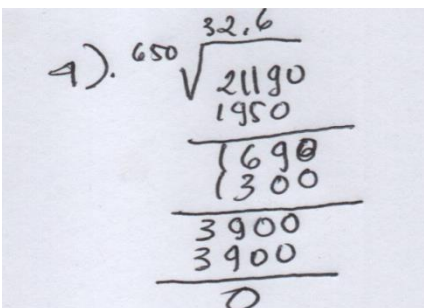 32.6
4). 650 √21190
1950
1690
1300
3900
3900
0